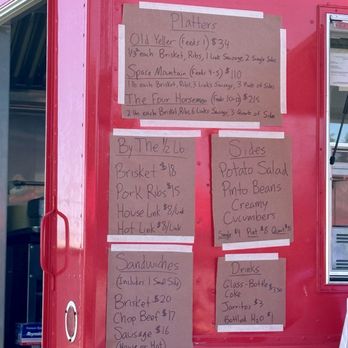 Platters
Old Yeller (Feeds 1) $34
1/3 lb each Brisket, Ribs, 1 Link Sausage, 2 Single Sides
Space Mountain (Feeds 4-5) $110
1 lb each Brisket, Ribs, 3 Links Sausage, 3 Pints of Sides
The Four Horsemen (Feeds 10-12) $215
2 lbs each Brisket, Ribs, 6 Links Sausage, 3 Quarts of Sides
By The 1/2 Lb
Brisket $18
Pork Ribs $15
House Link $8/Link
Hot Link $8/Link
Sides
Potato Salad
Pinto Beans
Creamy
Cucumbers
Single $4 Pint $8 Quart
Sandwiches
(Includes 1 Small Side)
Brisket $20
Chop Beef $17
Sausage $16
(House or Hot)
Drinks
Glass-Bottle
Coke $3.50
Jarritos $3
Bottled H2O $1